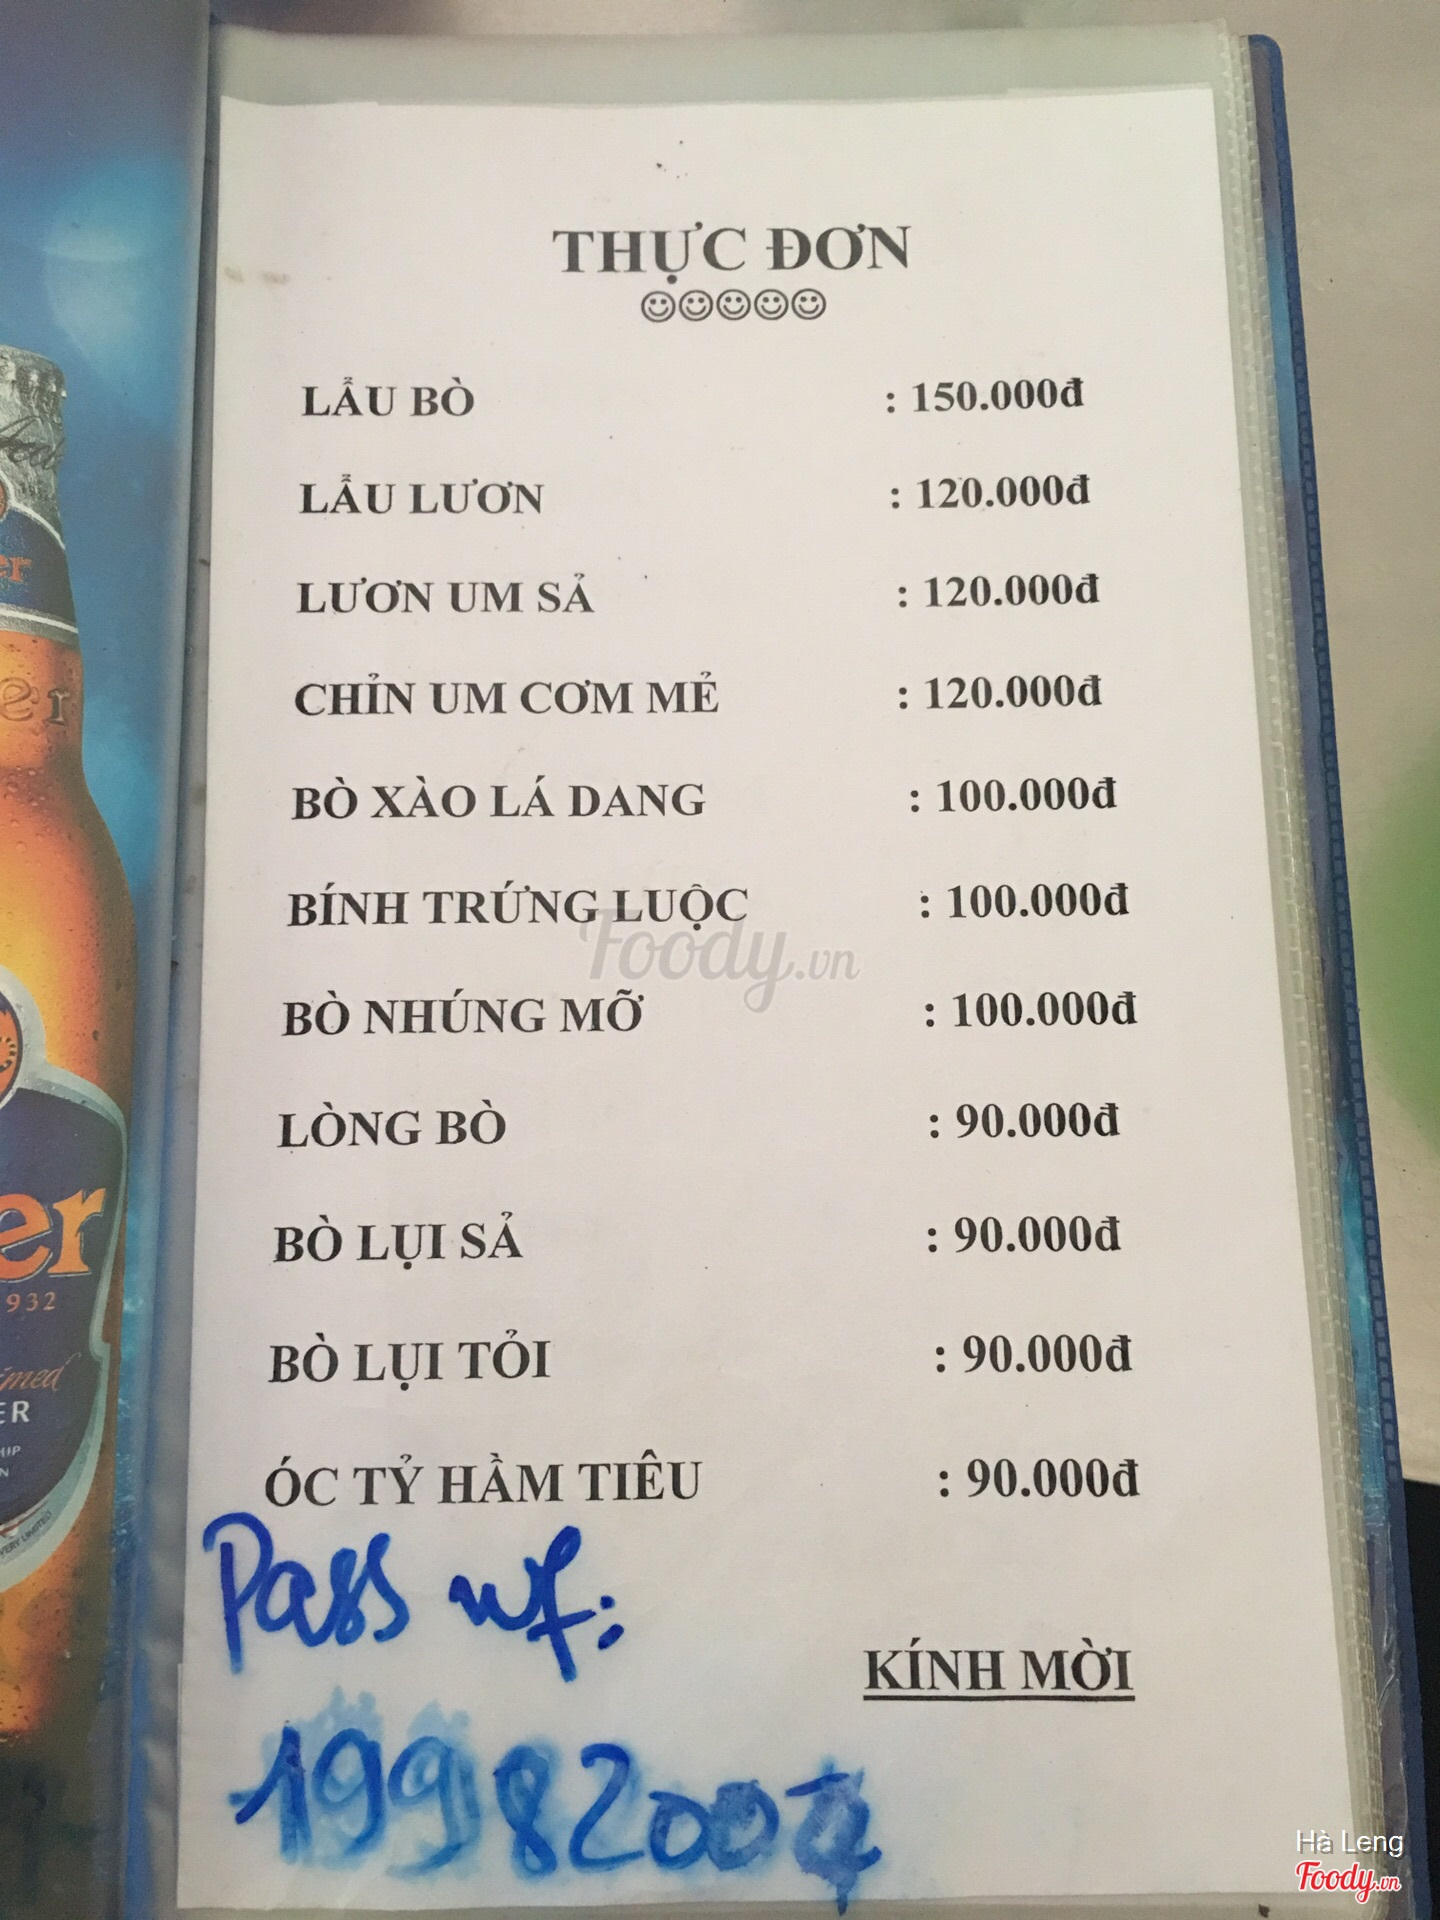 THỰC ĐƠN
☺☺☺☺☺
LẨU BÒ : 150.000đ
LẨU LƯƠN : 120.000đ
LƯƠN UM SẢ : 120.000đ
CHỈN UM CƠM MẺ : 120.000đ
BÒ XÀO LÁ DANG : 100.000đ
BÍNH TRỨNG LUỘC : 100.000đ
Foody.vn
BÒ NHÚNG MỠ : 100.000đ
LÒNG BÒ : 90.000đ
BÒ LỤI SẢ : 90.000đ
BÒ LỤI TỎI : 90.000đ
ÓC TỶ HẦM TIÊU : 90.000đ
Pass wf:
KÍNH MỜI
er
er
er
932
ER
Hà Leng
Foody.vn